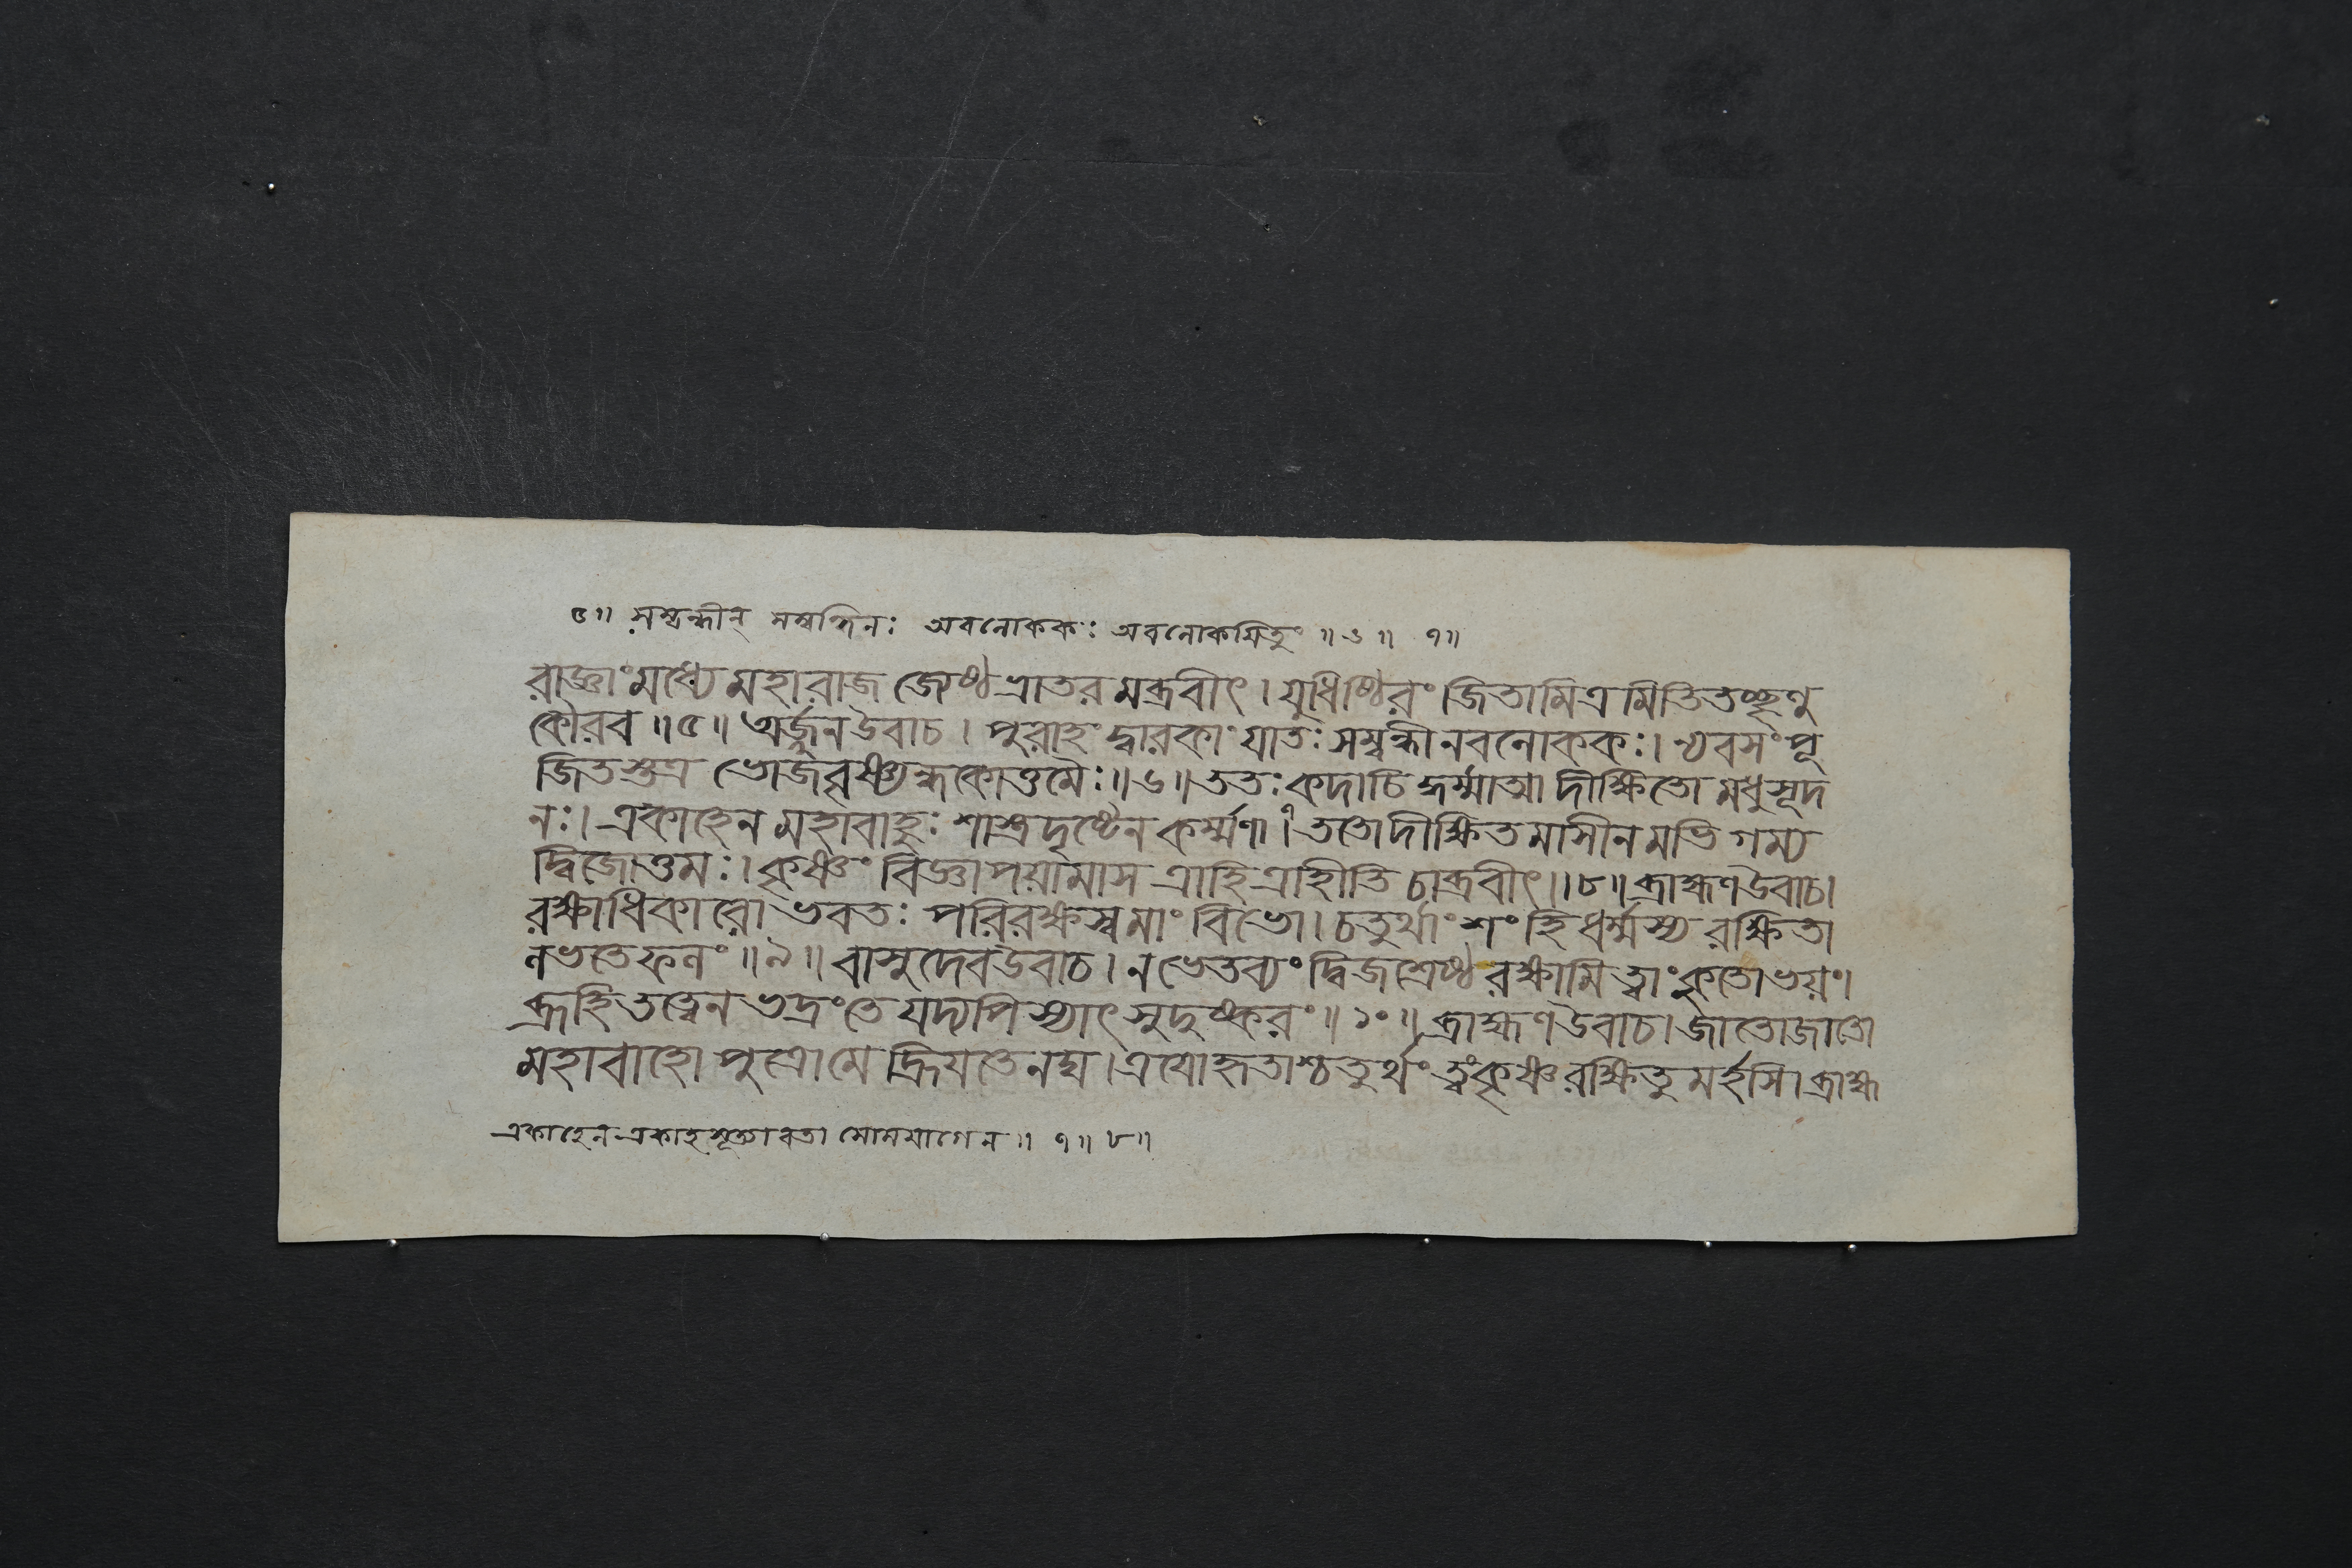 ৫॥ সম্বন্ধীন্ সম্বন্ধিনঃ অবলোককঃ অবলোকয়িতুং ॥ ৬ ॥ ৭॥
রাজ্ঞাং মধ্যে মহারাজ জ্যেষ্ঠভ্রাতরমব্রবীৎ । যুধিষ্ঠিরং জিতামিত্রমিতি তচ্ছৃণু
কৌরব ॥৫॥ অর্জ্জুন উবাচ । পুরাহং দ্বারকাং যাতঃ সম্বন্ধীনবলোককঃ । ন্যবসং পূ
জিতস্তত্র ভোজবৃষ্ণ্যন্ধকোত্তমৈঃ ॥৬॥ ততঃ কদাচিদ্ধর্ম্মাত্মা দীক্ষিতো মধুসূদ
নঃ । একাহেন মহাবাহুঃ শাস্ত্রদৃষ্টেন কর্ম্মণা ।৭ ততো দীক্ষিতমাসীনমভিগম্য
দ্বিজোত্তমঃ । কৃষ্ণং বিজ্ঞাপয়ামাস ত্রাহি ত্রাহীতি চাব্রবীৎ ॥৮॥ ব্রাহ্মণ উবাচ ।
রক্ষাধিকারো ভবতঃ পরিরক্ষস্ব মাং বিভো । চতুর্থাংশং হি ধর্ম্মস্য রক্ষিতা
লভতে ফলং ॥৯॥ বাসুদেব উবাচ । ন ভেতব্যং দ্বিজশ্রেষ্ঠ রক্ষামি ত্বাং কুতোভয়ং ।
ব্রূহি তত্ত্বেন ভদ্রং তে যদ্যপি স্যাৎ সুদুষ্করং ॥ ১০ ॥ ব্রাহ্মণ উবাচ । জাতো জাতো
মহাবাহো পুত্রো মে হ্রিয়তেনঘ । ত্রয়ো হৃতাশ্চতুর্থং ত্বং কৃষ্ণ রক্ষিতুমর্হসি । ব্রাহ্ম
একাহেন একাহসূত্যাবতা সোমযাগেন ॥ ৭॥ ৮॥